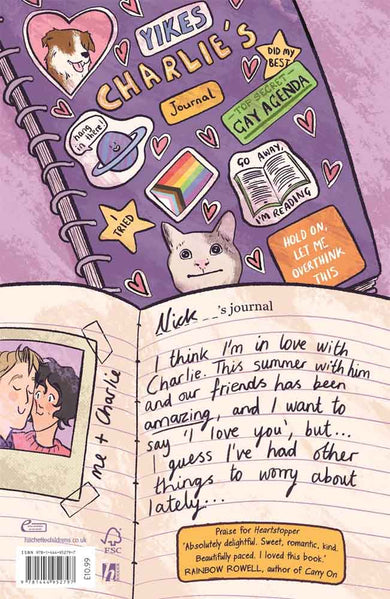 YIKES
CHARLIE'S
Journal
DID MY
BEST
TOP SECRET
GAY AGENDA
hang
in there!
GO AWAY,
I'M READING
I TRIED
HOLD ON,
LET ME
OVERTHINK
THIS
Nick __'s journal
I think I'm in love with
Charlie. This summer with him
and our friends has been
amazing, and I want to
say 'I love you', but...
I guess I've had other
things to worry about
lately...
me + Charlie
Praise for Heartstopper
'Absolutely delightful. Sweet, romantic, kind.
Beautifully paced. I loved this book.'
RAINBOW ROWELL, author of Carry On
hachettechildrens.co.uk
FSC
h
£10.99
ISBN 978-1-444-95279-7
9781444952797